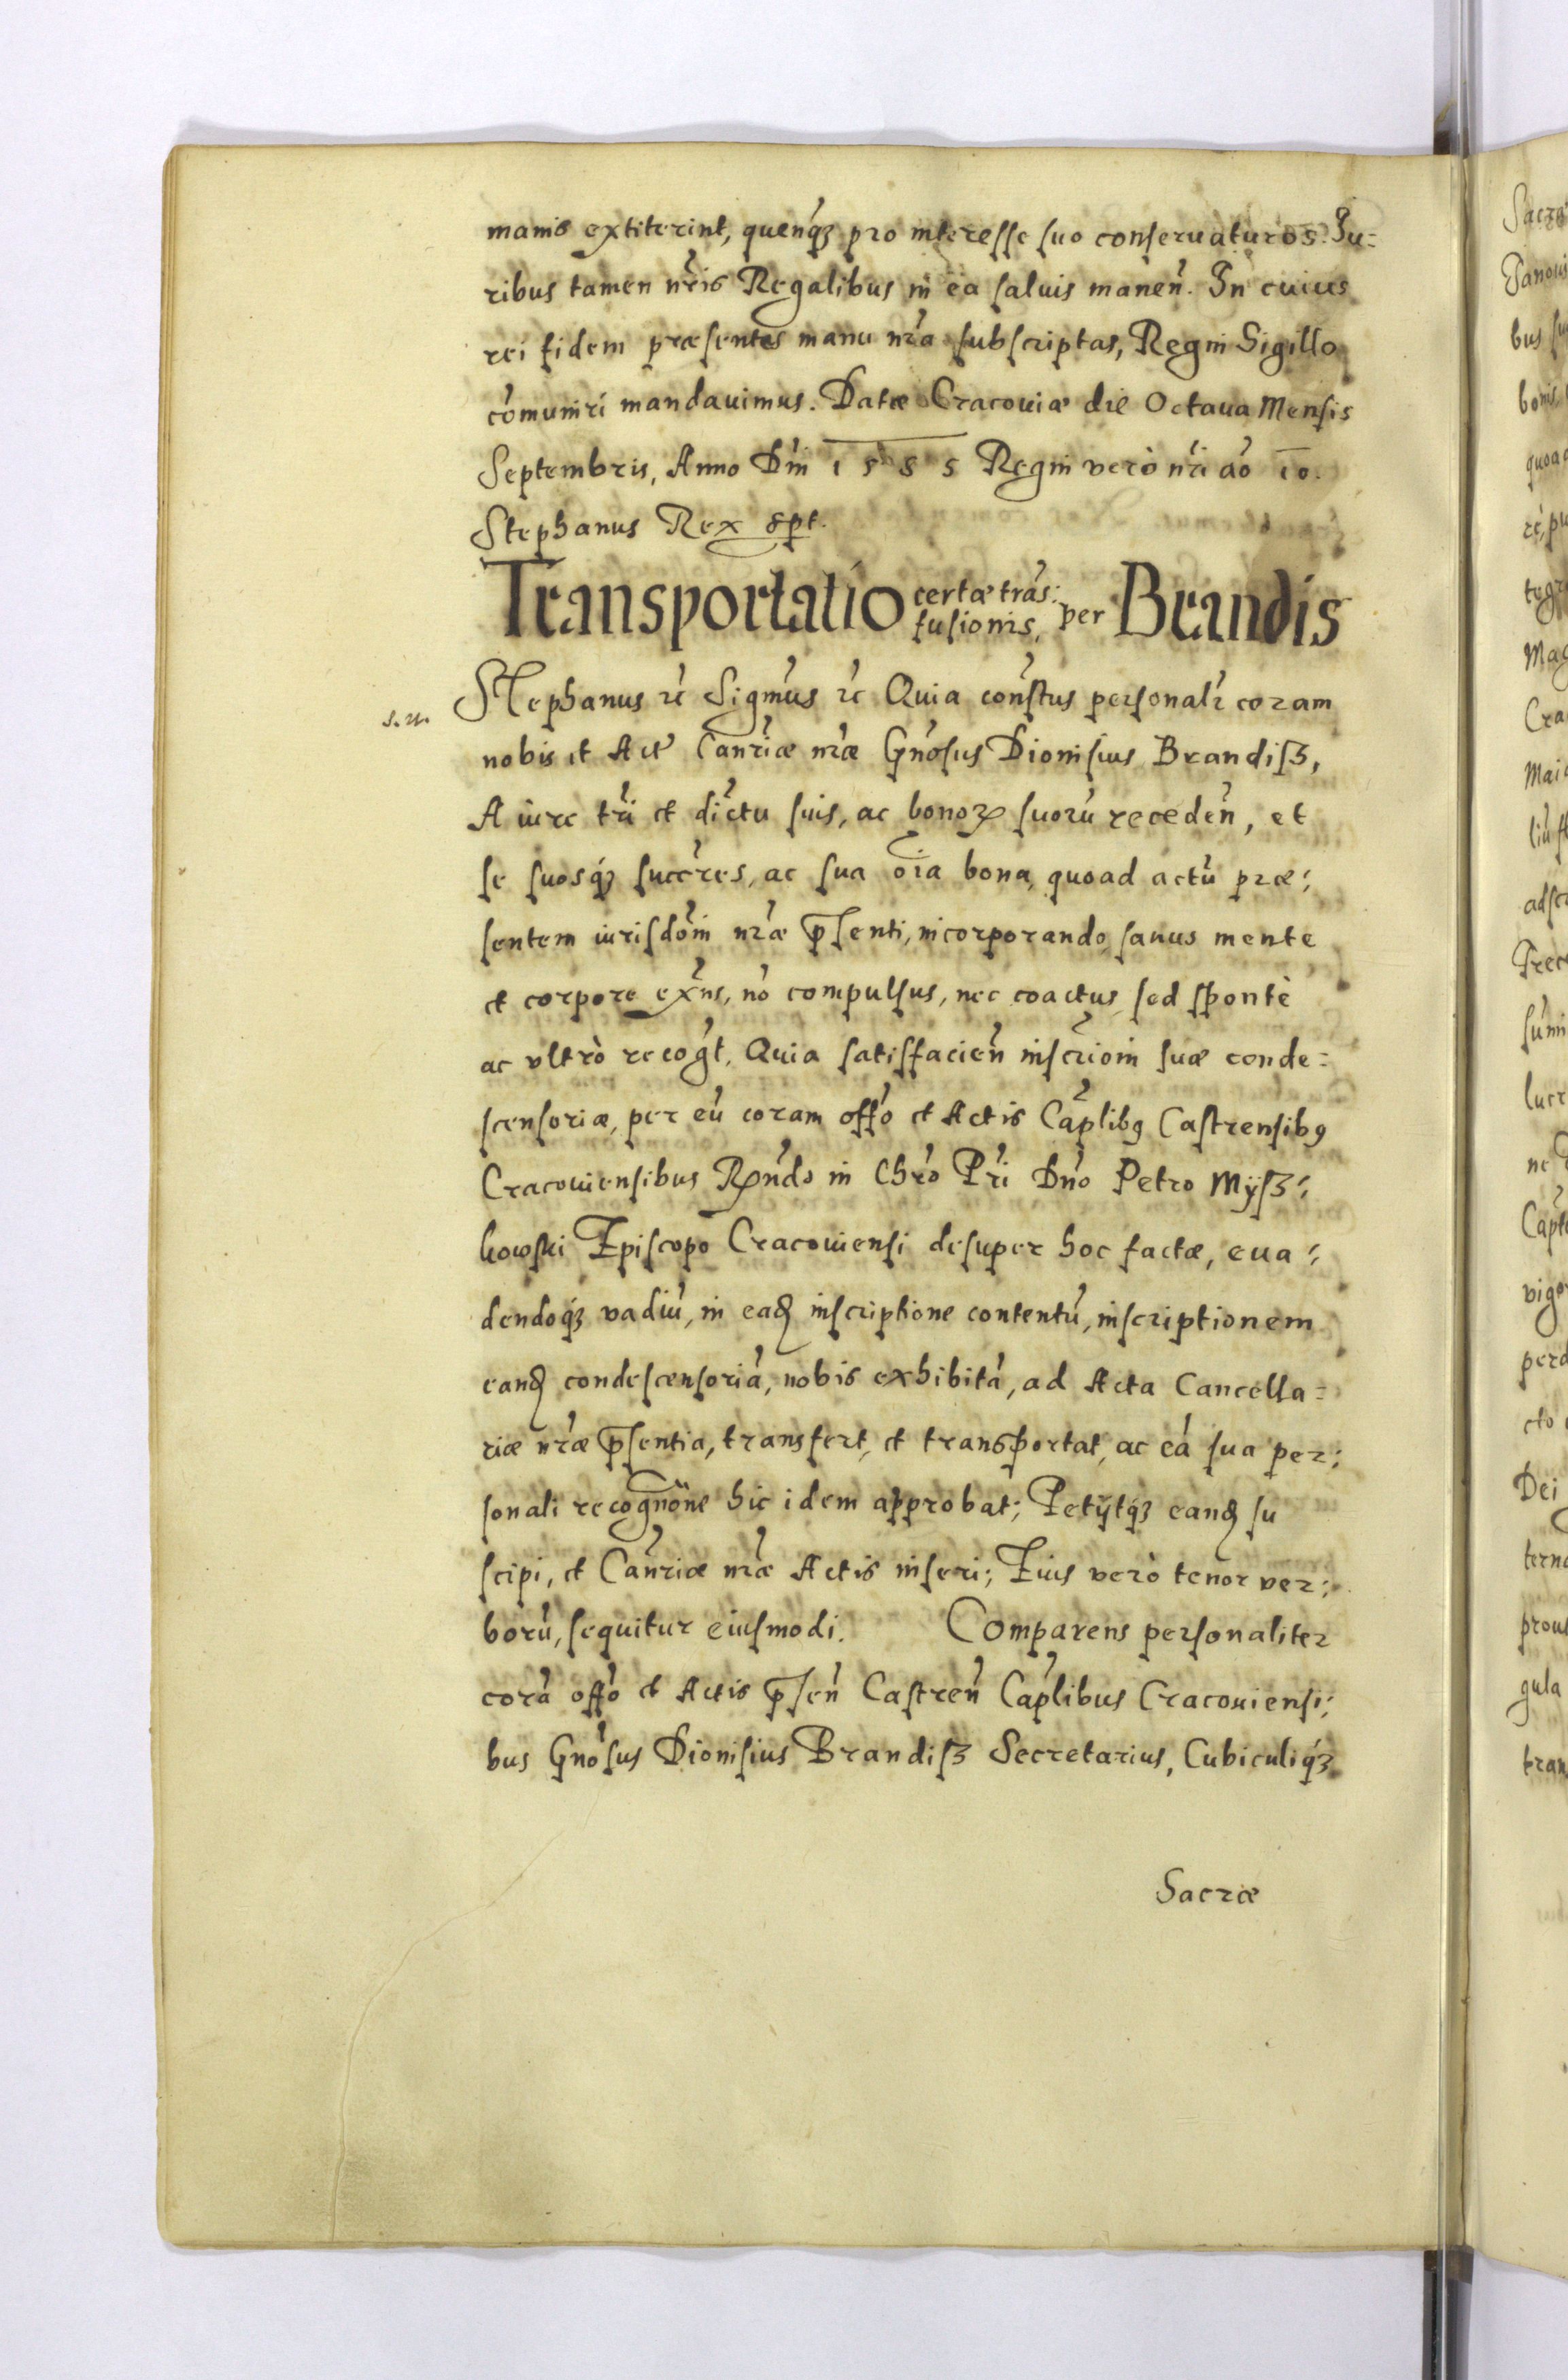 manis extiterint, quenq́ʒ pro interesse suo conseruaturos. Iu=
ribus tamen nr̃is Regalibus in ea saluis manen̉. In cuius
rei fidem præsentes manu nr̃a subscriptas, Regni Sigillo
com̃uniri mandauimus. Datæ Cracouiæ die Octaua Mensis
Septembris, Anno Dñi 1585 Regni verò nr̃i aõ 10.
Stephanus Rex spt.
Transportatio certæ tras: fusionis, per Brandis
Stephanus ꝛc̃ Sigm̃us ꝛc̃ Quia cons̃tus personalr̃ coram
s. n.
nobis et Act̃ Canr̃iæ nr̃æ Gñosus Dionisius Brandisʒ,
A iure tr̃i et dic̃tu suis, ac bonoꝝ suorũ receden̉, et
se suosq́ʒ succr̃es, ac sua oĩa bona, quoad actũ præ:
sentem iurisdõni nr̃æ p̃senti, incorporando, sanus mente
et corpore exñs, nõ compulsus, nec coactus, sed spontè
ac vltrò recog̃t. Quia satisfacien̉ inscriõni suæ conde=
scensoriæ, per eũ coram off̃o et Actis Cap̃libꝰ Castrensibꝰ
Cracouiensibus Rñdo in Chr̃o Pr̃i Dño Petro Mysʒ:
kowski Episcopo Cracouiensi desuper hoc factæ, eua:
dendoq́ʒ vadiũ, in eadꝫ inscriptione contentũ, inscriptionem
eandꝫ condescensoriã, nobis exhibitã, ad Acta Cancella=
riæ nr̃æ p̃sentia, transfert, et transportat, ac eã sua per:
sonali recognõne hic idem approbat; Petijtq́ʒ eandꝫ su
scipi, et Canr̃iæ nr̃æ Actis inseri; Eius verò tenor ver:
borũ, sequitur eiusmodi. Comparens personaliter
corã off̃o et Actis p̃sen̉ Castren̉ Cap̃libus Cracouiensi:
bus Gñosus Dionisius Brandisʒ Secretarius, Cubiculiq́ʒ
Sacræ